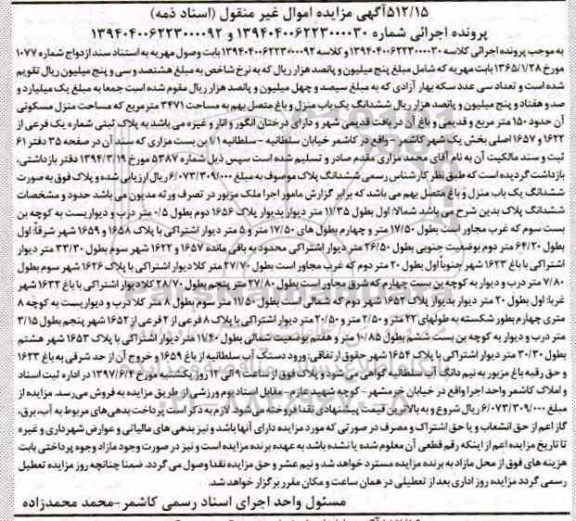 ۵۱۲/۱۵آگهی مزایده اموال غیر منقول (اسناد ذمه)
پرونده اجرائی شماره ۱۳۹۴۰۴۰۰۶۲۲۳۰۰۰۰۳۰ و ۱۳۹۴۰۴۰۰۶۲۲۳۰۰۰۰۹۲
به موجب پرونده اجرائی کلاسه ۱۳۹۴۰۴۰۰۶۲۲۳۰۰۰۰۳۰ و کلاسه ۱۳۹۴۰۴۰۰۶۲۲۳۰۰۰۰۹۲ بابت وصول مهریه به استناد سند ازدواج شماره ۱۰۷۷
مورخ ۱۳۶۵/۱/۲۸ بابت مهریه که شامل مبلغ پنج میلیون و پانصد هزار ریال که به نرخ شاخص به مبلغ هشتصد و سی و پنج میلیون ریال تقویم
شده است و تعداد سی عدد سکه بهار آزادی که به مبلغ سیصد و چهل میلیون و پانصد هزار ریال تقویم شده است جمعا به مبلغ یک میلیارد و
صد و هفتاد و پنج میلیون و پانصد هزار ریال ششدانگ یک باب منزل و باغ متصل بهم به مساحت ۳۴۷۱ مترمربع که مساحت منزل مسکونی
آن حدود ۱۵۰ متر مربع و قدیمی و باغ آن در بافت قدیمی شهر و دارای درختان انگور و انار و غیره می باشد به پلاک ثبتی شماره یک فرعی از
۱۶۲۲ و ۱۶۵۷ اصلی بخش یک شهر کاشمر - واقع در کاشمر خیابان سلطانیه - سلطانیه ۱/۱ بن بست مزاری که سند آن در صفحه ۳۵ دفتر ۶۱
ثبت و سند مالکیت آن به نام آقای محمد مزاری مقدم صادر و تسلیم شده است سپس ذیل شماره ۵۳۸۷ مورخ ۱۳۹۴/۳/۱۹ دفتر بازداشتی،
بازداشت گردیده است که طبق نظر کارشناس رسمی ششدانگ پلاک موصوف به مبلغ ۶/۰۷۳/۳۰۹/۰۰۰ ریال ارزیابی شده و پلاک فوق به صورت
ششدانگ یک باب منزل و باغ متصل بهم می باشد که برابر گزارش مامور اجرا ملک مزبور در تصرف ورثه مدیون می باشد حدود و مشخصات
ششدانگ پلاک بدین شرح می باشد شمالا: اول بطول ۱۱/۳۵ متر دیوار بدیوار پلاک ۱۶۵۶ دوم بطول ۰/۵ متر درب و دیواریست به کوچه بن
بست سوم که غرب مجاور است بطول ۱۷/۵۰ متر و چهارم بطول های ۱۷/۵۰ متر و ۵ متر دیوار اشتراکی با پلاک ۱۶۵۸ و ۱۶۵۹ شهر شرقا: اول
بطول ۶۴/۲۰ متر دوم بوضعیت جنوبی بطول ۲۶/۵۰ متر دیوار اشتراکی محدود به باقی مانده ۱۶۵۷ و ۱۶۲۲ شهر سوم بطول ۳۳/۳۰ متر دیوار
اشتراکی با باغ ۱۶۲۳ شهر جنوبا اول بطول ۲۰ متر دوم که غرب مجاور است بطول ۲۷/۷۰ متر کلا دیوار اشتراکی با پلاک ۱۶۲۶ شهر سوم بطول
۷/۸۰ متر درب و دیوار به کوچه بن بست چهارم که شرق مجاور است بطول ۲۷/۸۰ متر پنجم بطول ۲۸/۷۰ کلا دیوار اشتراکی با باغ ۱۶۳۲ شهر
غربا: اول بطول ۲۰ متر دیوار بدیوار پلاک ۱۶۵۲ شهر دوم که شمالی است بطول ۱۱/۵۰ متر سوم بطول ۸ متر کلا درب و دیواریست به کوچه ۸
متری چهارم بطور شکسته به طولهای ۲۲ متر و ۲/۵۰ متر و ۲۰/۵۰ متر دیوار اشتراکی با پلاک ۸ فرعی از ۲ فرعی از ۱۶۵۲ شهر پنجم بطول ۳/۱۵
متر درب و دیوار به کوچه بن بست ششم بطول ۰/۸۵ متر و هفتم بوضعیت شمالی بطول ۱۱/۴۰ متر دیوار اشتراکی با پلاک ۱۶۵۳ شهر هشتم
بطول ۳۰/۳۰ متر دیوار اشتراکی با پلاک ۱۶۵۴ شهر حقوق ارتفاقی: ورود دستک آب سلطانیه از باغ ۱۶۵۹ و خروج آن از حد شرقی به باغ ۱۶۲۳
و حق رقبه باغ مزبور به نیم دانگ آب سلطانیه گواهی می شود و پلاک فوق از ساعت ۹ الی ۱۲ روز یکشنبه مورخ ۱۳۹۷/۶/۴ در اداره ثبت اسناد
و املاک کاشمر واحد اجرا واقع در خیابان خرمشهر - کوچه شهید عازم - مقابل استادیوم ورزشی از طریق مزایده به فروش می رسد. مزایده از
مبلغ ۶/۰۷۳/۳۰۹/۰۰۰ ریال شروع و به بالاترین قیمت پیشنهادی نقدا فروخته می شود. لازم به ذکر است پرداخت بدهی های مربوط به آب، برق،
گاز اعم از حق انشعاب و یا حق اشتراک و مصرف در صورتی که مورد مزایده دارای آنها باشد و نیز بدهی های مالیاتی و عوارض شهرداری و غیره
تا تاریخ مزایده اعم از اینکه رقم قطعی آن معلوم شده یا نشده باشد به عهده برنده مزایده است و نیز در صورت وجود مازاد وجوه پرداختی بابت
هزینه های فوق از محل مازاد به برنده مزایده مسترد خواهد شد و نیم عشر و حق مزایده نقدا وصول می گردد. ضمنا چنانچه روز مزایده تعطیل
رسمی گردد مزایده روز اداری بعد از تعطیلی در همان ساعت و مکان مقرر برگزار خواهد شد.
مسئول واحد اجرای اسناد رسمی کاشمر - محمد محمدزاده